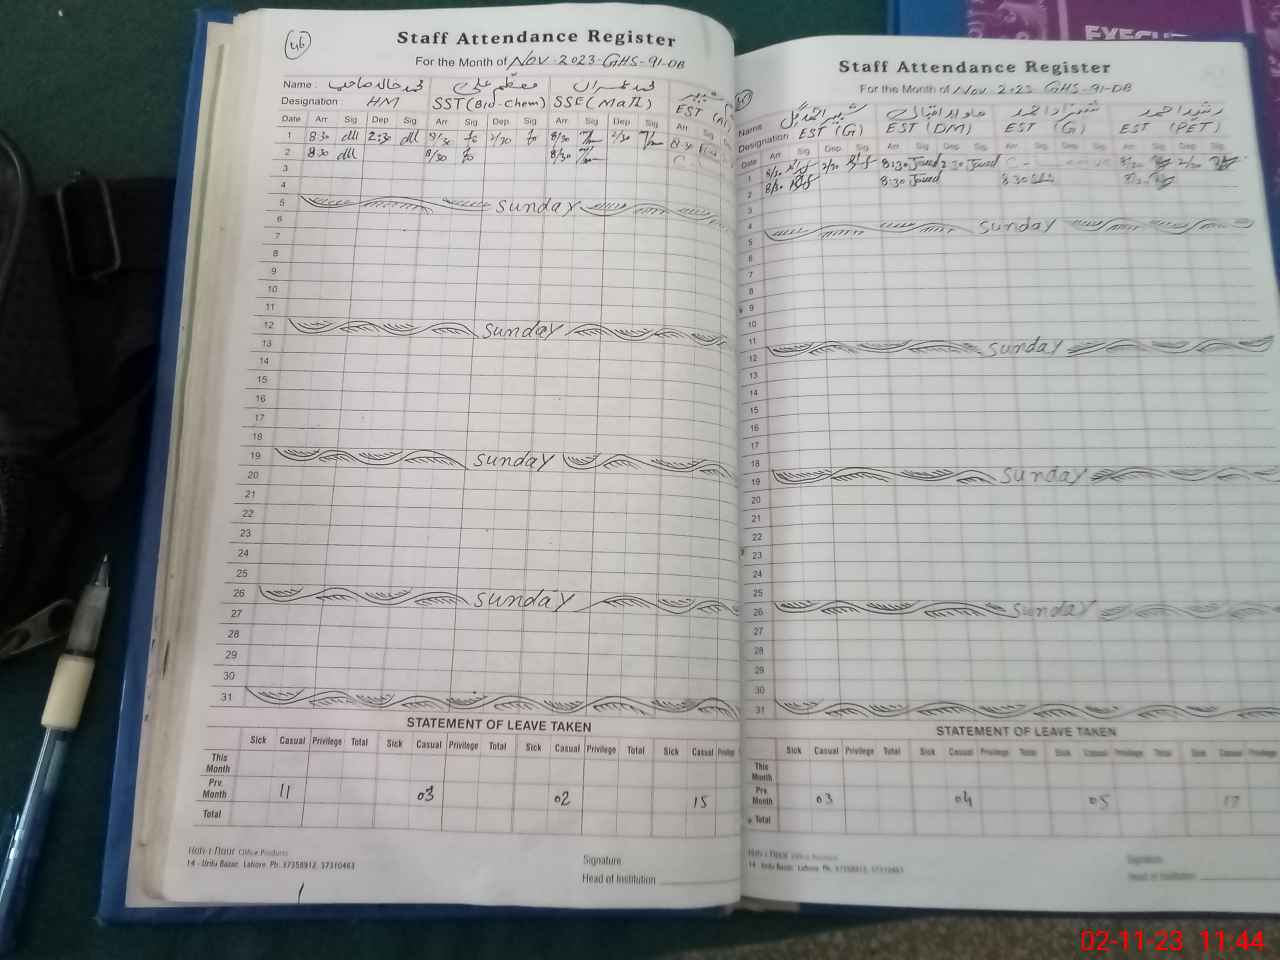 46
Staff Attendance Register
For the Month of Nov-2023-GHS-91-DB
Name : محمد خالد صاحب معظم علی محمد عمران
Designation : HM SST (Bio-Chem) SSE (Math) EST
Date Arr Sig Dep Sig Arr Sig Dep Sig Arr Sig Dep Sig Arr Sig
1 8:30 2:30 8/30 2/30 8/30 2/30
2 8:30 8/30 8/30
3
4
5 Sunday
6
7
8
9
10
11
12 Sunday
13
14
15
16
17
18
19 Sunday
20
21
22
23
24
25
26 Sunday
27
28
29
30
31
STATEMENT OF LEAVE TAKEN
Sick Casual Privilege Total Sick Casual Privilege Total Sick Casual Privilege Total Sick Casual
This Month
Prv. Month 11 03 02 15
Total
Office Products
14 - Urdu Bazar, Lahore. Ph. 37358912, 37310463
Signature
Head of Institution
EXECU
Staff Attendance Register
For the Month of Nov-2023 GHS-91-DB
Name شہزاد احمد رشید احمد
Designation EST (G) EST (DM) EST (G) EST (PET)
Date Arr Sig Dep Sig Arr Sig Dep Sig Arr Sig Dep Sig Arr Sig Dep Sig
1 8/30 2/30 8:30 Javed 2:30 Javed 8/30 2/30
2 8/30 8:30 Javed 8:30 8/30
3
4 Sunday
5
6
7
8
9
10
11
12 Sunday
13
14
15
16
17
18
19 Sunday
20
21
22
23
24
25
26 Sunday
27
28
29
30
31
STATEMENT OF LEAVE TAKEN
Sick Casual Privilege Total Sick Casual Privilege Total Sick Casual Privilege Total Sick Casual
This Month
Prv. Month 03 04 05 17
Total
14 - Urdu Bazar, Lahore. Ph. 37358912, 37310463
Signature
Head of Institution
02-11-23 11:44